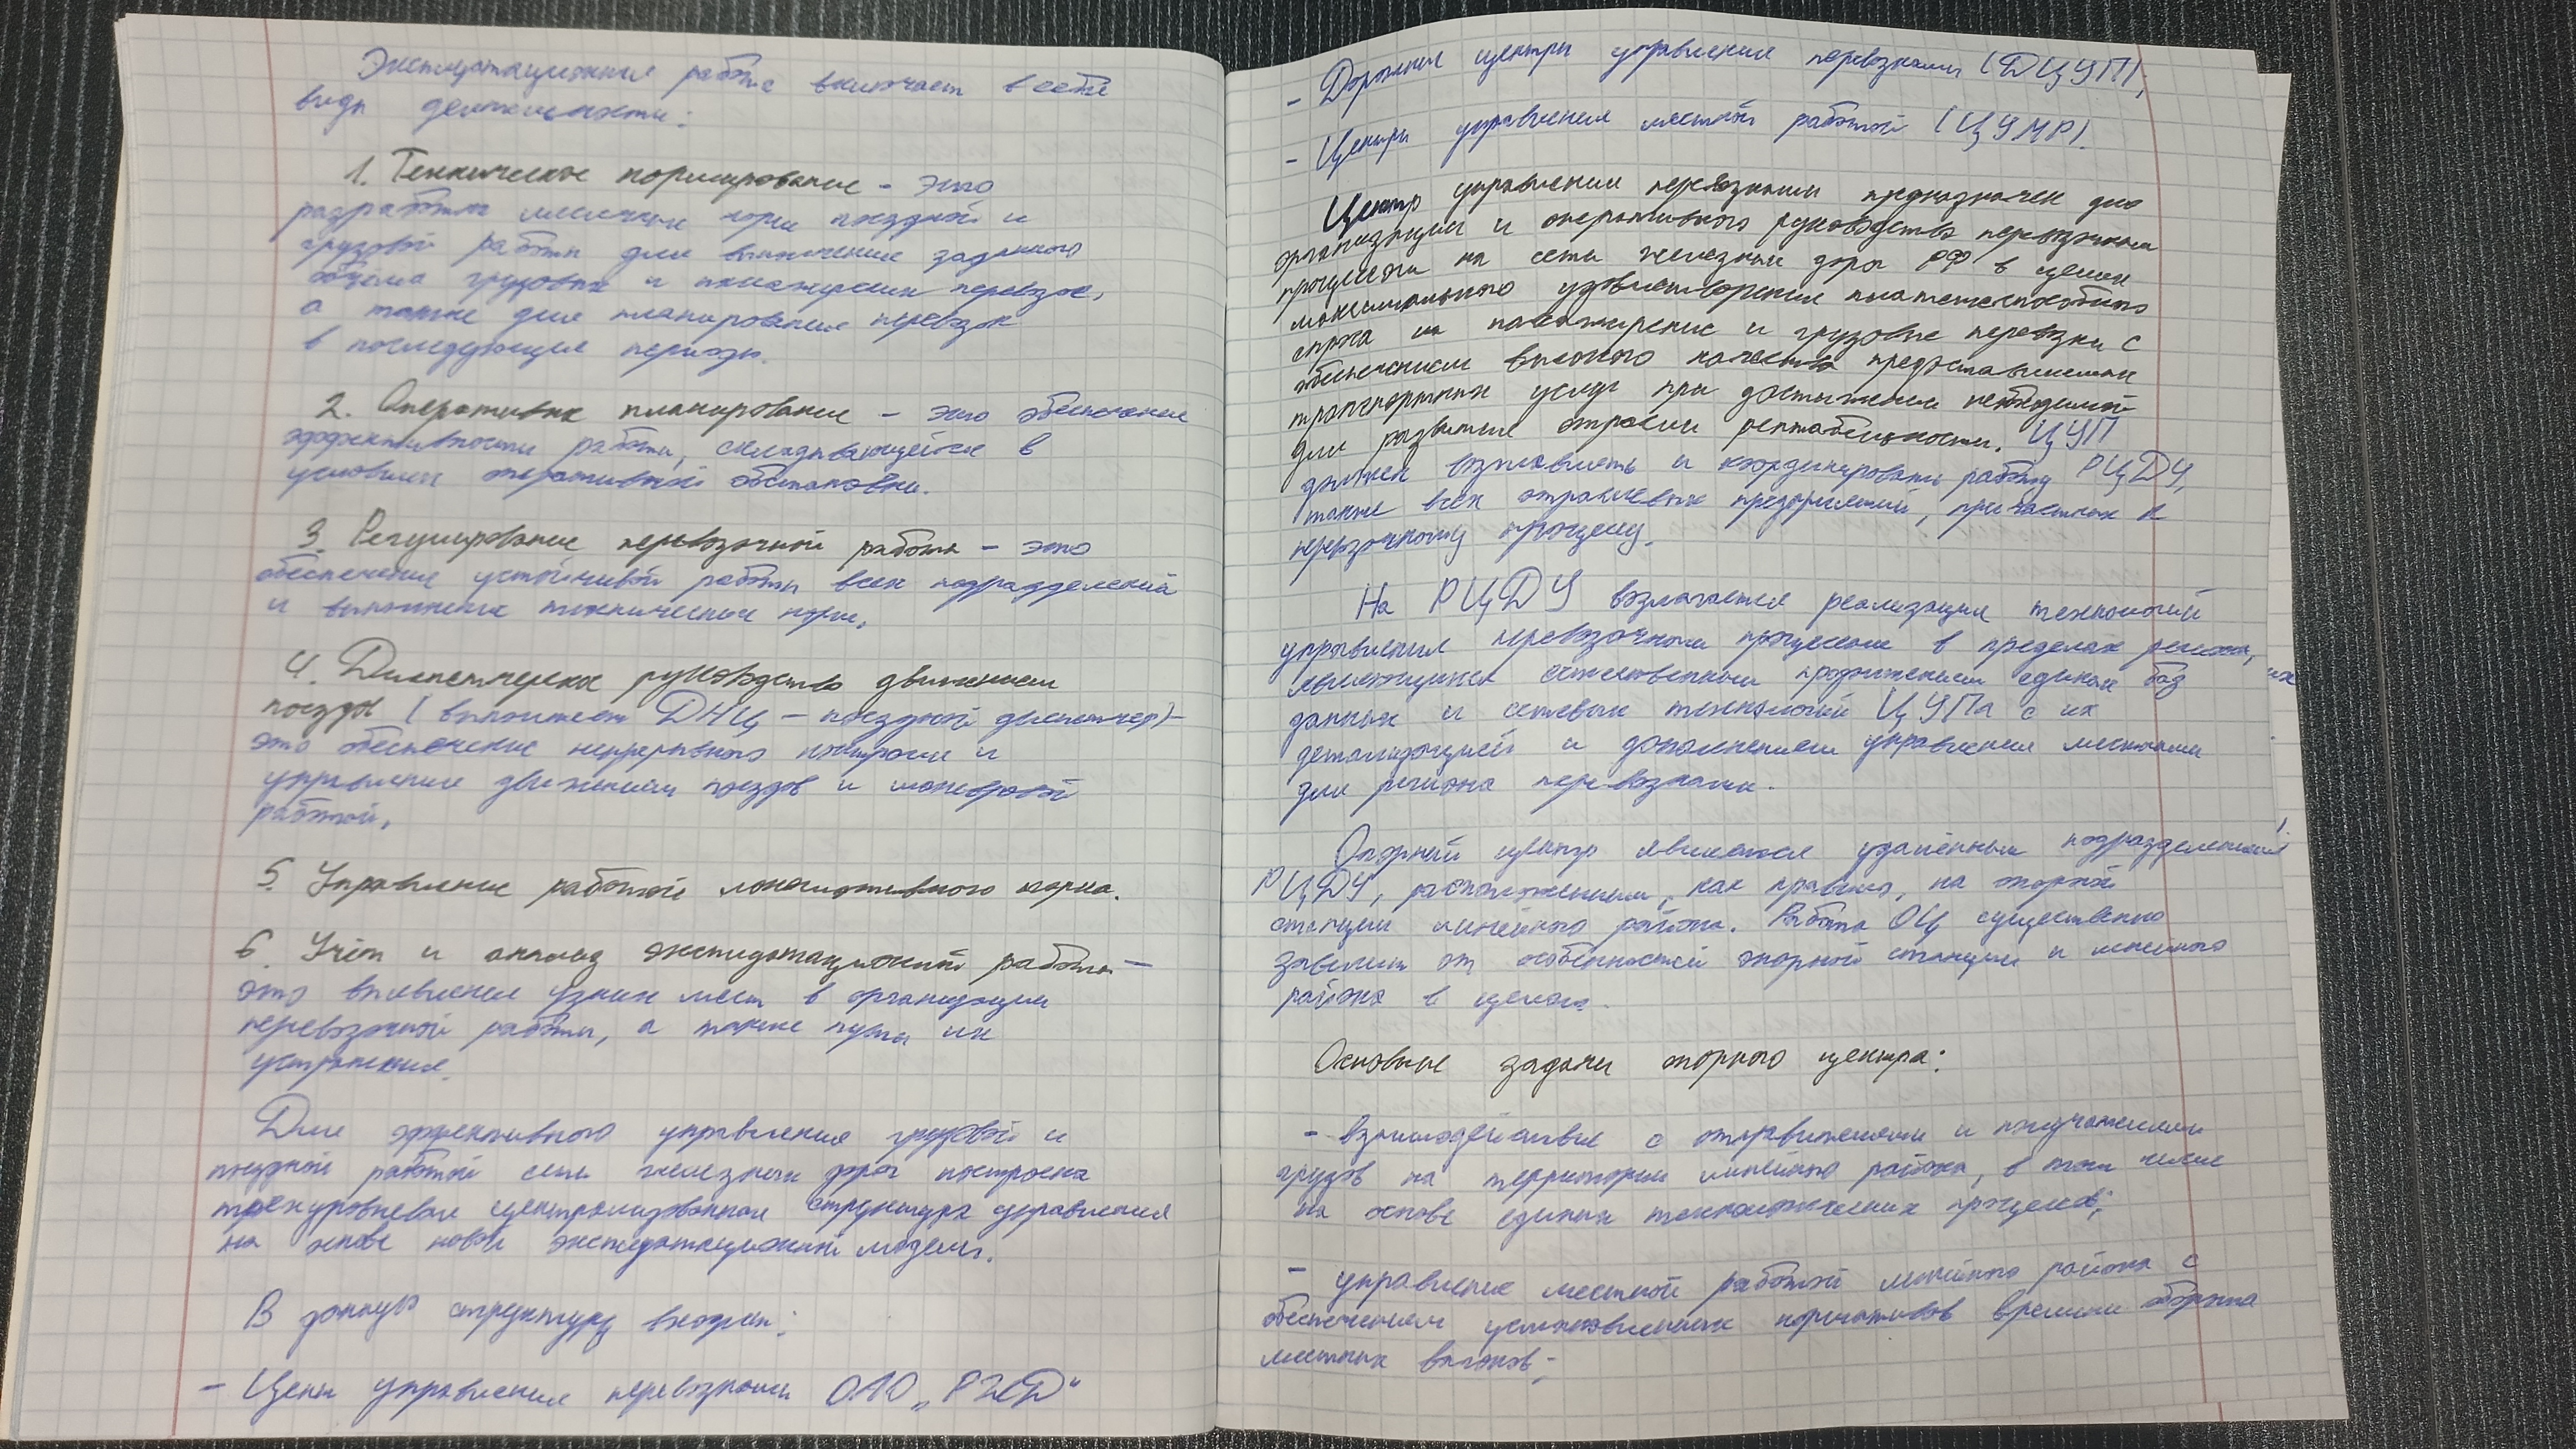 Эксплуатационная работа включает в себя
виды деятельности:
1. Техническое нормирование - это
разработка месячных норм поездной и
грузовой работы для выполнения заданного
объёма грузовых и пассажирских перевозок,
а также для планирования перевозок
в последующие периоды.
2. Оперативное планирование - это обеспечение
эффективности работы, складывающейся в
условиях оперативной обстановки.
3. Регулирование перевозочной работы - это
обеспечение устойчивой работы всех подразделений
и выполнение технических норм.
4. Диспетчерское руководство движением
поездов (выполняет ДНЦ - поездной диспетчер) -
это обеспечение непрерывного контроля и
управление движением поездов и маневровой
работой.
5. Управление работой локомотивного парка.
6. Учёт и анализ эксплуатационной работы -
это выявление узких мест в организации
перевозочной работы, а также пути их
устранения.
Для эффективного управления грузовой и
поездной работой сети железных дорог построена
трехуровневая централизованная структура управления
на основе новой эксплуатационной модели.
В данную структуру входят:
- Центр управления перевозками ОАО „РЖД“
- Дорожные центры управления перевозками (ДЦУП);
- Центры управления местной работой (ЦУМР).
Центр управления перевозками предназначен для
организации и оперативного руководства перевозочным
процессом на сети железных дорог РФ в целях
максимального удовлетворения платежеспособного
спроса на пассажирские и грузовые перевозки с
обеспечением высокого качества предоставляемых
транспортных услуг при достижении необходимой
для развития отрасли рентабельности. ЦУП
должен возглавлять и координировать работу РЦДУ,
также всех отраслевых предприятий, причастных к
перевозочному процессу.
На РЦДУ возлагается реализация технологий
управления перевозочным процессом в пределах региона,
являющихся естественным продолжением единых баз
данных и сетевых технологий ЦУПа с их
детализацией и дополнением управления местными
для региона перевозками.
Опорный центр является удалённым подразделением
РЦДУ, расположенным, как правило, на опорной
станции линейного района. Работа ОЦ существенно
зависит от особенностей опорной станции и линейного
района в целом.
Основные задачи опорного центра:
- взаимодействие с отправителями и получателями
грузов на территории линейного района, в том числе
на основе единых технологических процессов;
- управление местной работой линейного района с
обеспечением установленных нормативов времени оборота
местных вагонов;